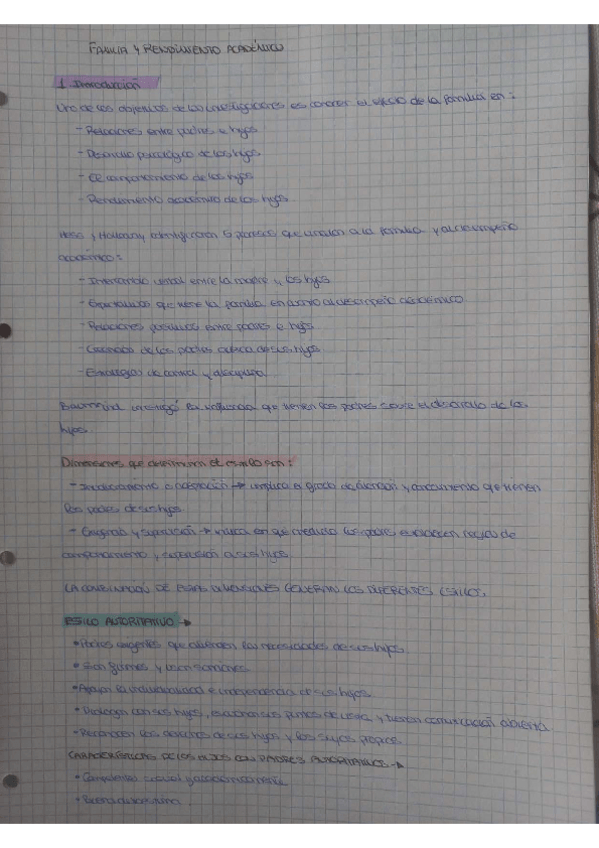 FAMILIA Y RENDIMIENTO ACADÉMICO
1. Introducción
Uno de los objetivos de las investigaciones es conocer el efecto de la familia en:
- Relaciones entre padres e hijos
- Desarrollo psicológico de los hijos
- El comportamiento de los hijos
- Rendimiento académico de los hijos.
Hess y Holloway identificaron 5 procesos que vinculan a la familia y al desempeño
académico:
- Interacción verbal entre la madre y los hijos
- Expectativas que tiene la familia en torno al desempeño académico
- Relaciones positivas entre padres e hijos
- Creencias de los padres acerca de sus hijos
- Estrategias de control y disciplina
Baumrind investigó la influencia que tienen los padres sobre el desarrollo de los
hijos.
Dimensiones que determinan el estilo son:
- Involucramiento o aceptación → implica el grado de atención y conocimiento que tienen
los padres de sus hijos
- Exigencia y supervisión → indica en qué medida los padres establecen reglas de
comportamiento y supervisión a sus hijos.
LA COMBINACIÓN DE ESTAS DIMENSIONES GENERAN LOS DIFERENTES ESTILOS.
ESTILO AUTORITATIVO →
• Padres exigentes que atienden las necesidades de sus hijos.
• Son firmes y ponen sanciones.
• Apoyan la individualidad e independencia de sus hijos
• Dialogan con sus hijos, escuchan sus puntos de vista, y tienen comunicación abierta
• Reconocen los derechos de sus hijos y los suyos propios.
CARACTERÍSTICAS DE LOS HIJOS CON PADRES AUTORITATIVOS →
• Competentes social y académicamente
• Buena autoestima.